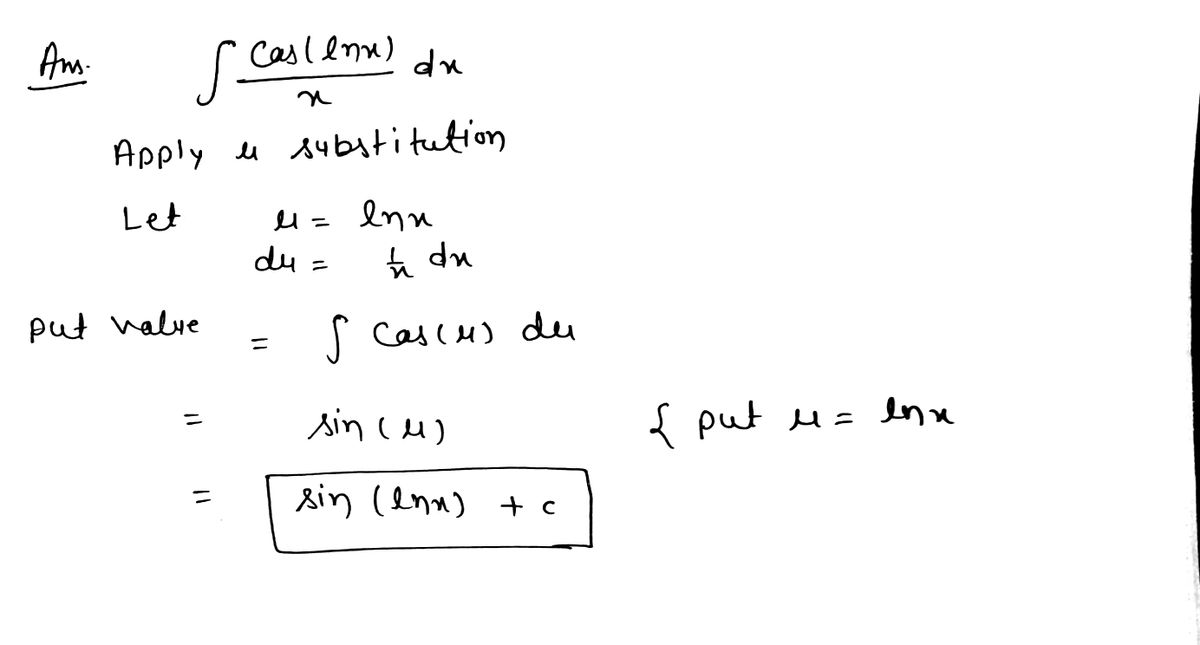 Ans. ∫ cos(lnx)/x dx
Apply u substitution
Let u = lnx
du = 1/x dx
put value = ∫ cos(u) du
= sin(u) { put u = lnx
= sin(lnx) + c